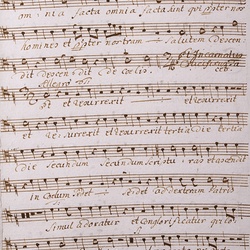 omnia facta omnia facta sunt qui propter nos
homines et propter nostram salutem descen
dit descendit de coelis.
Allegro
et resurrexit et resurrexit
et resurrexit tertia die tertia
die secundum secundum scriptu ras et ascendit
in coelum sedet sedet ad dexteram Patris
simul adoratur et conglorificatur qui lo